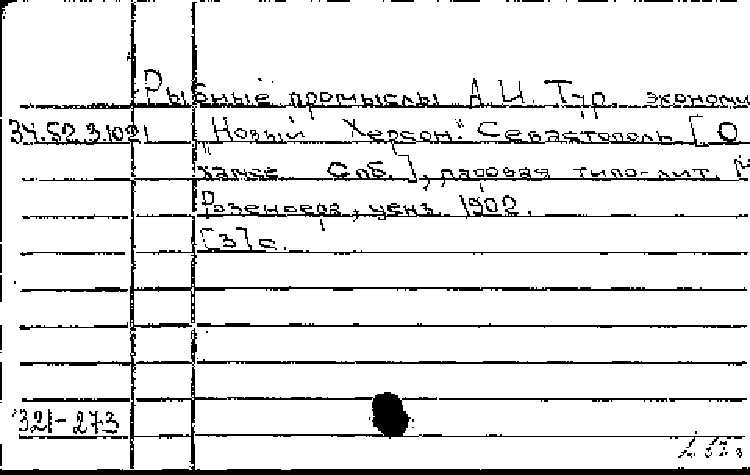 Рыбные промыслы А.И. Тур. экономи
34.52.3.1021 "Новый Херсон". Севастополь [О
"Хамсе Спб.], паровая типо-лит.
Розенберга, ценз. 1902.
[3] с.
321-273